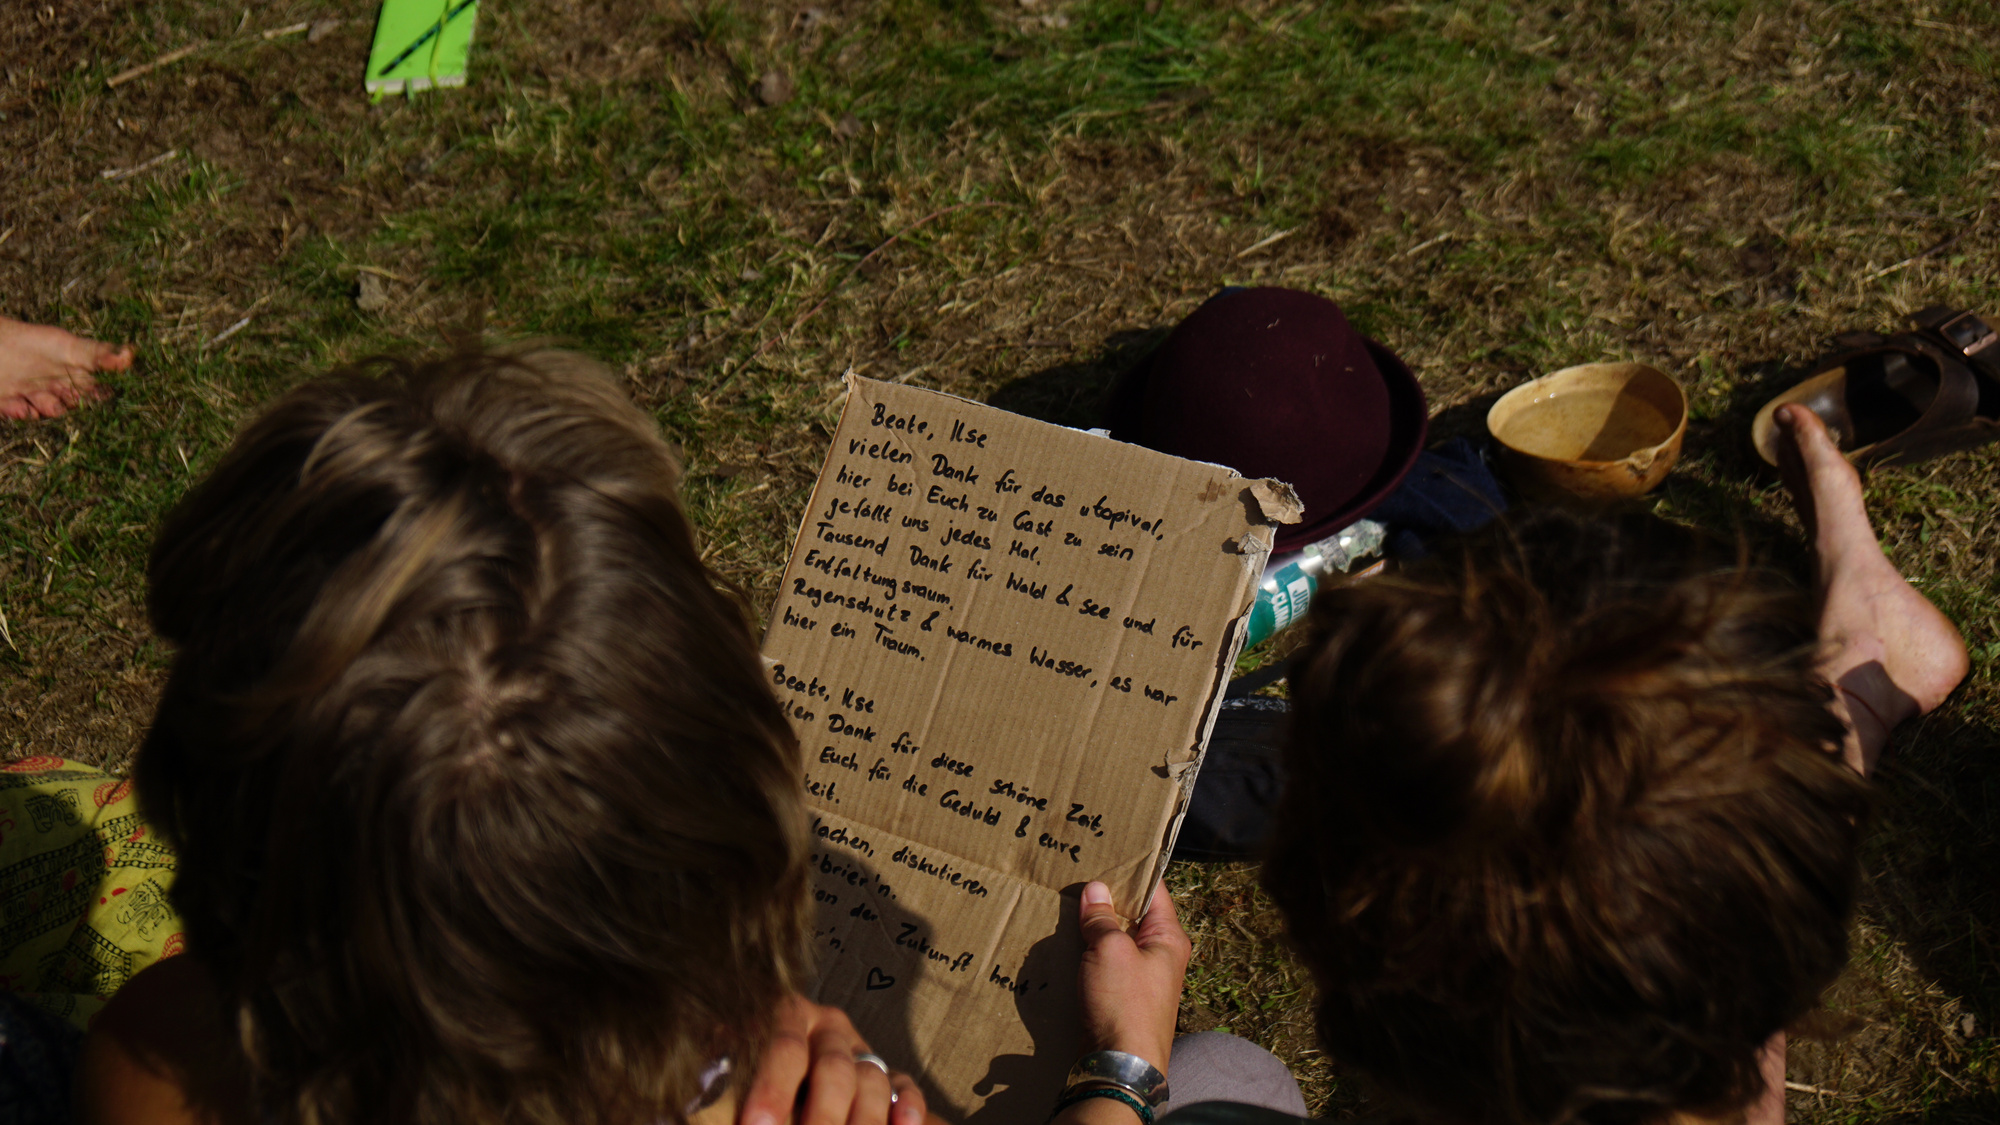 Beate, Ilse
vielen Dank für das utopival,
hier bei Euch zu Gast zu sein
gefällt uns jedes Mal.
Tausend Dank für Wald & See und für
Entfaltungsraum.
Regenschutz & warmes Wasser, es war
hier ein Traum.
Beate, Ilse
elen Dank für diese schöne Zeit,
Euch für die Geduld & eure
keit.
lachen, diskutieren
ebrier'n.
ion der Zukunft heut'
r'n.
JUST